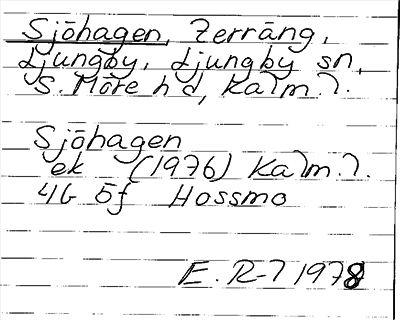 Sjöhagen, Terräng,
Ljungby, Ljungby sn,
S. Möre hd, Kalm. l.
Sjöhagen
ek (1976) Kalm. l.
4G 5f Hossmo
E. R-l 1978